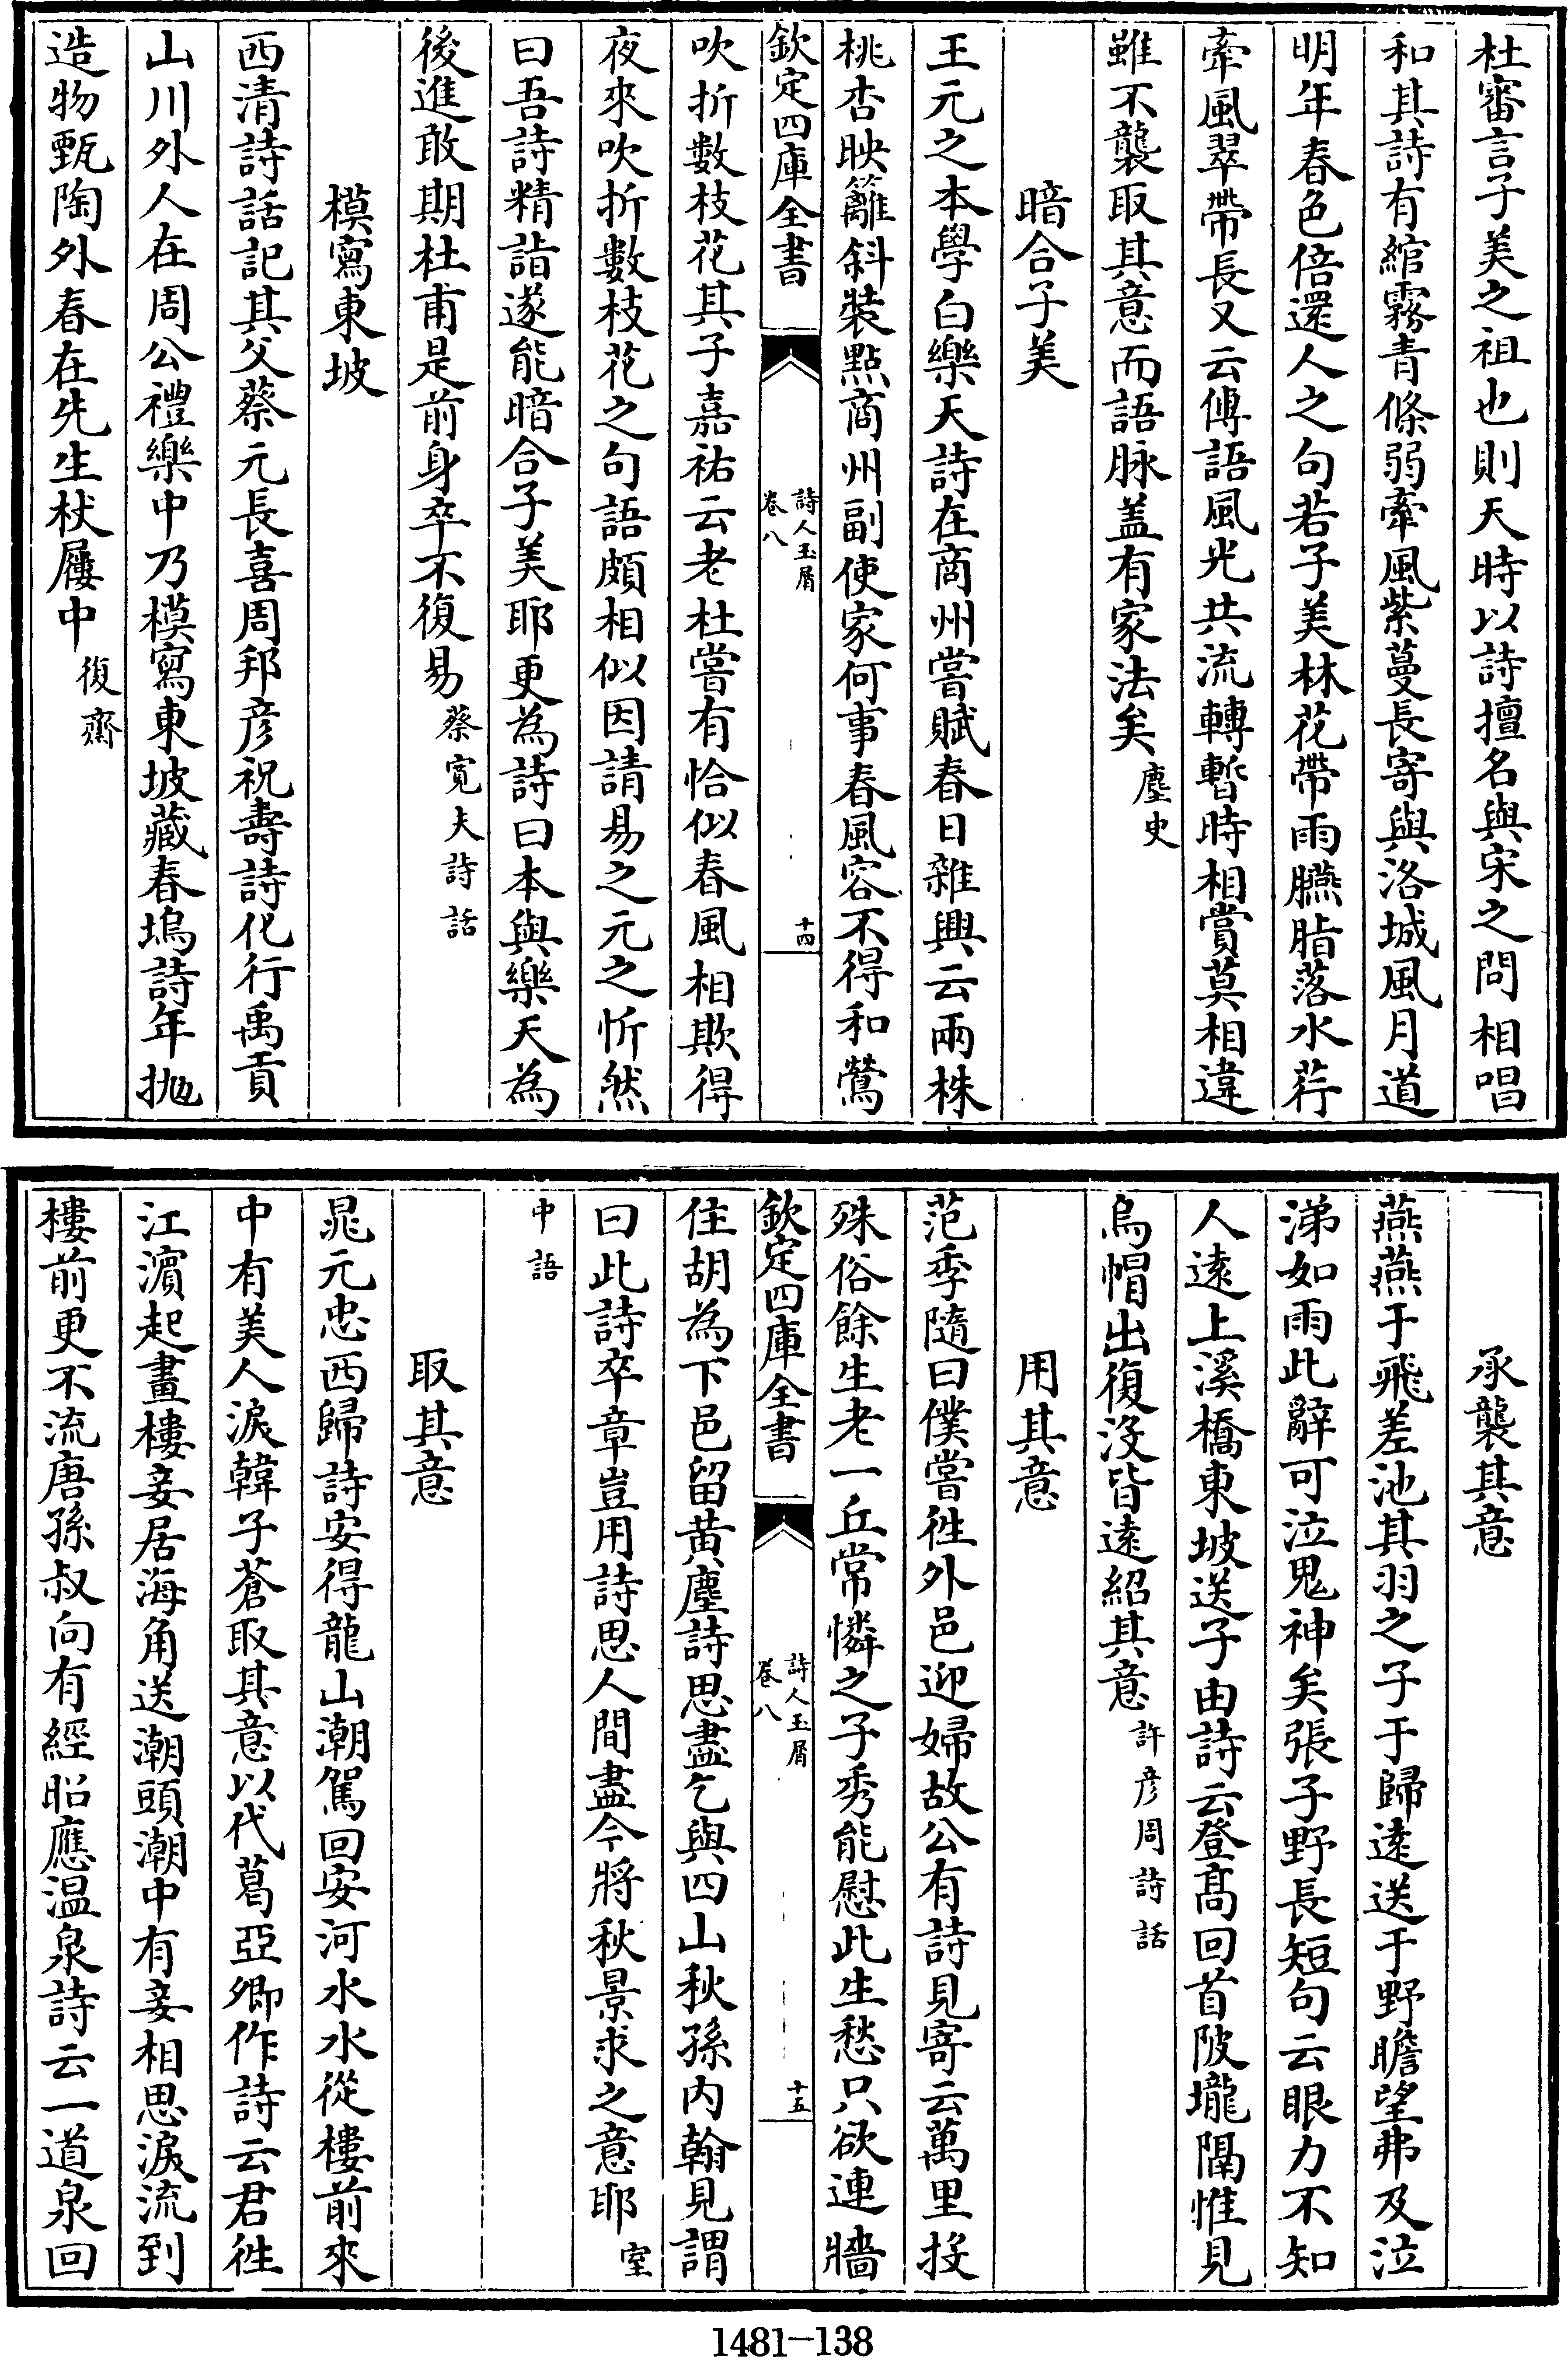 杜審言子美之祖也則天時以詩擅名與宋之問相唱
和其詩有綰霧青條弱牽風紫蔓長寄與洛城風月道
明年春色倍還人之句若子美林花帶雨臙脂落水荇
牽風翠帶長又云傳語風光共流轉暫時相賞莫相違
雖不襲取其意而語脉盖有家法矣塵史
暗合子美
王元之本學白樂天詩在商州嘗賦春日雜興云兩株
桃杏映籬斜裝點商州副使家何事春風容不得和鶯
欽定四庫全書
詩人玉屑
卷八
十四
吹折數枝花其子嘉祐云老杜嘗有恰似春風相欺得
夜來吹折數枝花之句語頗相似因請易之元之忻然
曰吾詩精詣遂能暗合子美耶更為詩曰本與樂天為
後進敢期杜甫是前身卒不復易蔡寬夫詩話
模寫東坡
西清詩話記其父蔡元長喜周邦彦祝壽詩化行禹貢
山川外人在周公禮樂中乃模寫東坡藏春塢詩年抛
造物甄陶外春在先生杖屨中復齋
承襲其意
燕燕于飛差池其羽之子于歸逺送于野瞻望弗及泣
涕如雨此辭可泣鬼神矣張子野長短句云眼力不知
人逺上溪橋東坡送子由詩云登髙回首陂壠隔惟見
烏帽出復没皆逺紹其意許彦周詩話
用其意
范季隨曰僕嘗徃外邑迎婦故公有詩見寄云萬里投
殊俗餘生老一丘常憐之子秀能慰此生愁只欲連牆
欽定四庫全書
詩人玉屑
卷八
十五
住胡為下邑留黄塵詩思盡乞與四山秋孫内翰見謂
曰此詩卒章豈用詩思人間盡今將秋景求之意耶室
中語
取其意
晁元忠西歸詩安得龍山潮駕回安河水水從樓前來
中有美人淚韓子蒼取其意以代葛亞卿作詩云君徃
江濵起畫樓妾居海角送潮頭潮中有妾相思淚流到
樓前更不流唐孫叔向有經昭應温泉詩云一道泉回
1481-138